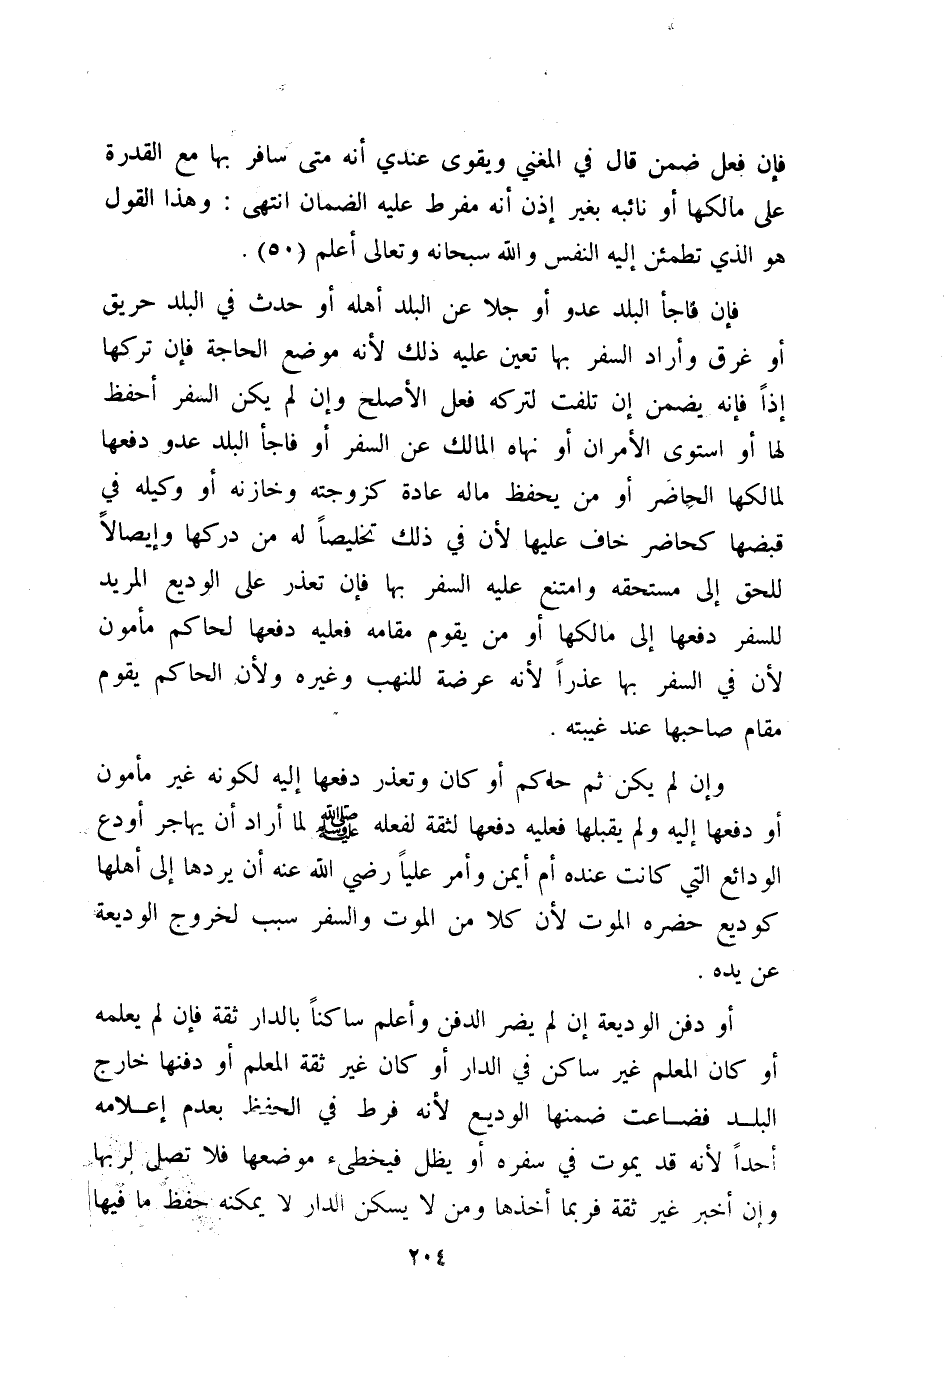 فإن فعل ضمن قال في المغني ويقوى عندي أنه متى سافر بها مع القدرة
على مالكها أو نائبه بغير إذن أنه مفرط عليه الضمان انتهى : وهذا القول
هو الذي تطمئن إليه النفس والله سبحانه وتعالى أعلم (٥٠) .
فإن فاجأ البلد عدو أو جلا عن البلد أهله أو حدث في البلد حريق
أو غرق وأراد السفر بها تعين عليه ذلك لأنه موضع الحاجة فإن تركها
إذاً فإنه يضمن إن تلفت لتركه فعل الأصلح وإن لم يكن السفر أحفظ
لها أو استوى الأمران أو نهاه المالك عن السفر أو فاجأ البلد عدو دفعها
لمالكها الحاضر أو من يحفظ ماله عادة كزوجته وخازنه أو وكيله في
قبضها كحاضر خاف عليها لأن في ذلك تخليصاً له من دركها وإيصالاً
للحق إلى مستحقه وامتنع عليه السفر بها فإن تعذر على الوديع المريد
للسفر دفعها إلى مالكها أو من يقوم مقامه فعليه دفعها لحاكم مأمون
لأن في السفر بها عذراً لأنه عرضة للنهب وغيره ولأن الحاكم يقوم
مقام صاحبها عند غيبته .
وإن لم يكن ثم حاكم أو كان وتعذر دفعها إليه لكونه غير مأمون
أو دفعها إليه ولم يقبلها فعليه دفعها لثقة لفعله ﷺ لما أراد أن يهاجر أودع
الودائع التي كانت عنده أم أيمن وأمر علياً رضي الله عنه أن يردها إلى أهلها
كوديع حضره الموت لأن كلا من الموت والسفر سبب لخروج الوديعة
عن يده .
أو دفن الوديعة إن لم يضر الدفن وأعلم ساكناً بالدار ثقة فإن لم يعلمه
أو كان المعلم غير ساكن في الدار أو كان غير ثقة المعلم أو دفنها خارج
البلد فضاعت ضمنها الوديع لأنه فرط في الحفظ بعدم إعلامه
أحداً لأنه قد يموت في سفره أو يظل فيخطىء موضعها فلا تصل لربها
وإن أخبر غير ثقة فربما أخذها ومن لا يسكن الدار لا يمكنه حفظ ما فيها
٢٠٤